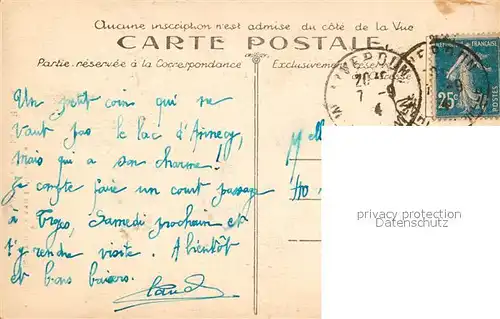 Aucune inscription n'est admise du côté de la Vue
CARTE POSTALE
Partie réservée à la Correspondance
Exclusivement réservé
Un petit coin qui ne
vaut pas le lac d'Annecy,
mais qui a son charme!
Je compte faire un court passage
à Samedi prochain et
t'y rendre visite. A bientôt
et bons baisers.
Claude
Melle
40
VERDUN
20
7 - 9
4
FRANÇAISE
25c
privacy protection
Datenschutz